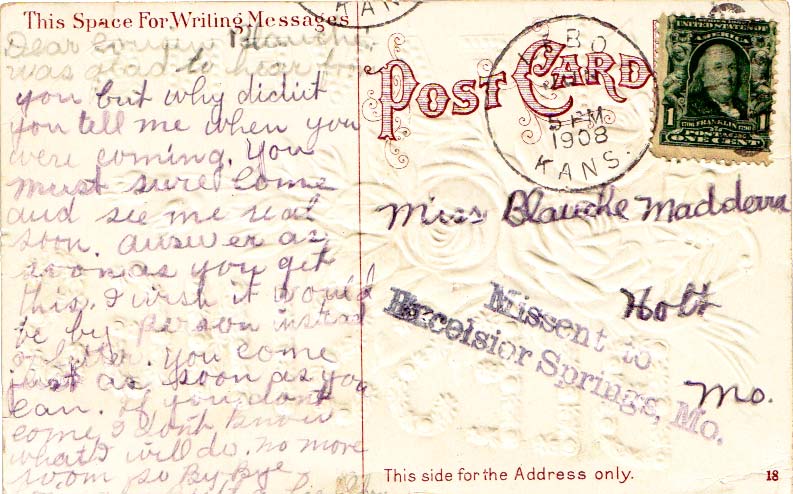 This Space For Writing Messages
Dear Cousin Blanche.
was glad to hear from
you but why didn't
you tell me when you
were coming. You
must sure come
and see me real
soon. answer as
soon as you get
this. I wish it would
be by person instead
of letter. You come
just as soon as you
can. if you don't
come I don't know
what I will do. no more
room so By Bye
KANS
POST CARD
BO
5 PM
1908
KANS.
UNITED STATES OF
AMERICA
1 1
FRANKLIN
POSTAGE
ONE CENT
Miss Blanche Maddera
Holt
Mo.
Missent to
Excelsior Springs, Mo.
This side for the Address only.
18